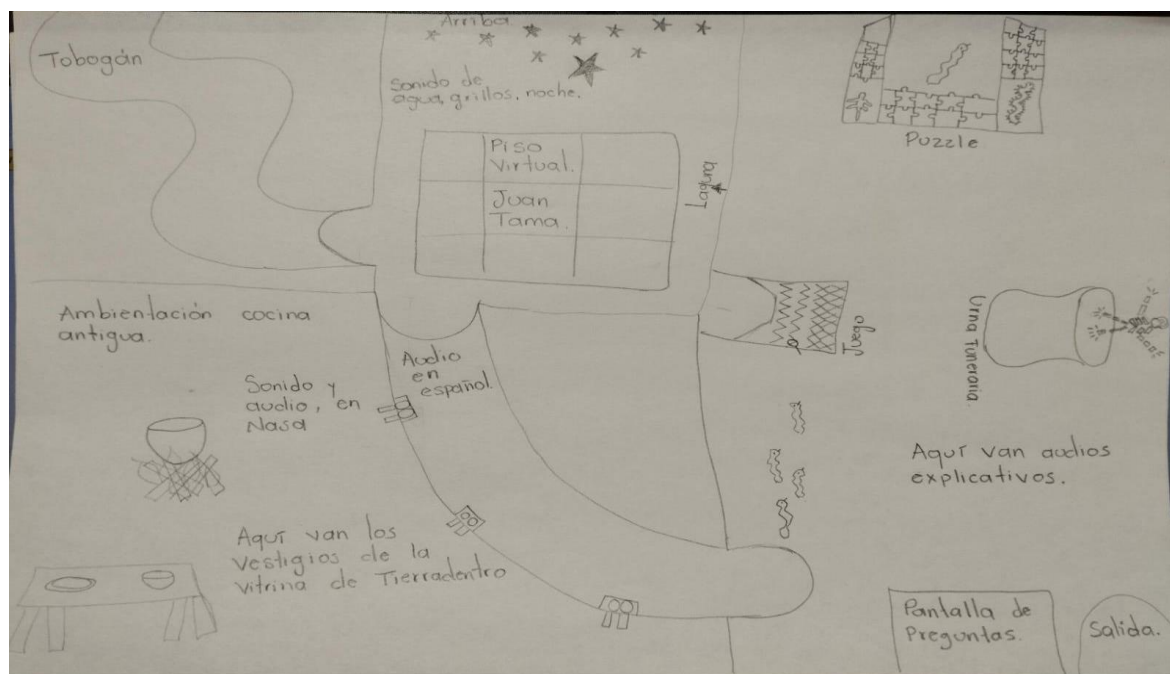 Tobogán
Arriba
Sonido de
agua, grillos, noche.
Piso
Virtual.
Juan
Tama.
Laguna
Puzzle
Juego
Urna Funeraria.
Ambientación cocina
antigua.
Audio
en
español.
Sonido y
audio, en
Nasa
Aquí van audios
explicativos.
Aquí van los
vestigios de la
vitrina de Tierradentro
Pantalla de
Preguntas.
Salida.